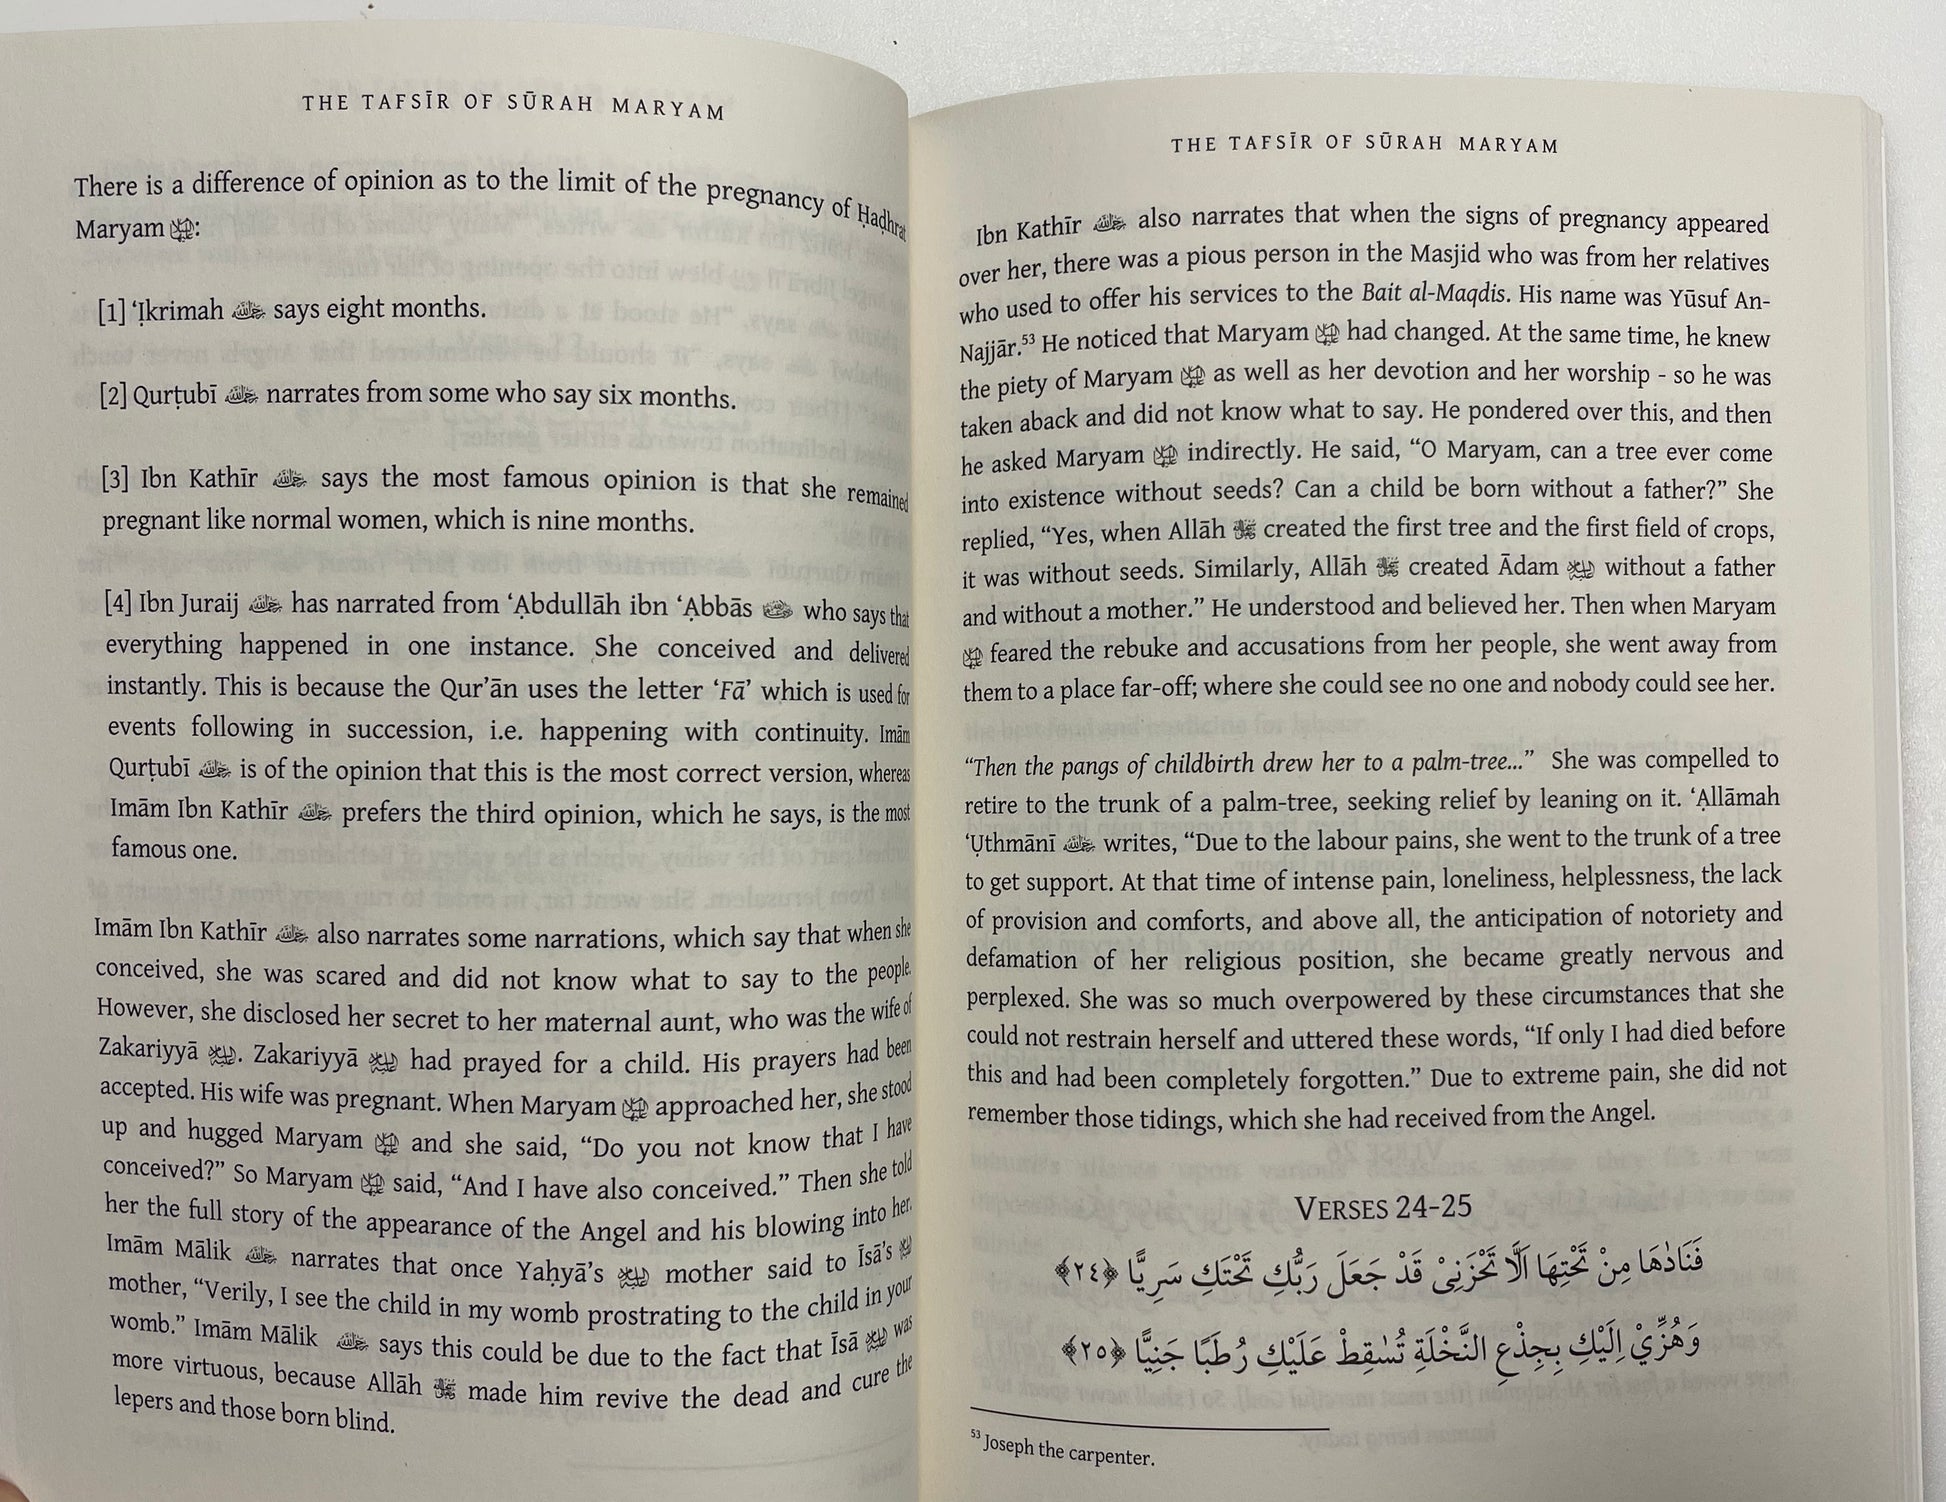 THE TAFSĪR OF SŪRAH MARYAM
There is a difference of opinion as to the limit of the pregnancy of Ḥaḍhrat
Maryam :
[1] ‘Ịkrimah says eight months.
[2] Qurṭubī narrates from some who say six months.
[3] Ibn Kathīr says the most famous opinion is that she remained
pregnant like normal women, which is nine months.
[4] Ibn Juraij has narrated from ‘Ạbdullāh ibn ‘Ạbbās who says that
everything happened in one instance. She conceived and delivered
instantly. This is because the Qur’ān uses the letter ‘Fā’ which is used for
events following in succession, i.e. happening with continuity. Imām
Qurṭubī is of the opinion that this is the most correct version, whereas
Imām Ibn Kathīr prefers the third opinion, which he says, is the most
famous one.
Imām Ibn Kathīr also narrates some narrations, which say that when she
conceived, she was scared and did not know what to say to the people.
However, she disclosed her secret to her maternal aunt, who was the wife of
Zakariyyā . Zakariyyā had prayed for a child. His prayers had been
accepted. His wife was pregnant. When Maryam approached her, she stood
up and hugged Maryam and she said, “Do you not know that I have
conceived?” So Maryam said, “And I have also conceived.” Then she told
her the full story of the appearance of the Angel and his blowing into her.
Imām Mālik narrates that once Yaḥyā’s mother said to Īsā’s
mother, “Verily, I see the child in my womb prostrating to the child in your
womb.” Imām Mālik says this could be due to the fact that Īsā was
more virtuous, because Allāh made him revive the dead and cure the
lepers and those born blind.
THE TAFSĪR OF SŪRAH MARYAM
Ibn Kathīr also narrates that when the signs of pregnancy appeared
over her, there was a pious person in the Masjid who was from her relatives
who used to offer his services to the Bait al-Maqdis. His name was Yūsuf An-
Najjār.53 He noticed that Maryam had changed. At the same time, he knew
the piety of Maryam as well as her devotion and her worship - so he was
taken aback and did not know what to say. He pondered over this, and then
he asked Maryam indirectly. He said, “O Maryam, can a tree ever come
into existence without seeds? Can a child be born without a father?” She
replied, “Yes, when Allāh created the first tree and the first field of crops,
it was without seeds. Similarly, Allāh created Ādam without a father
and without a mother.” He understood and believed her. Then when Maryam
feared the rebuke and accusations from her people, she went away from
them to a place far-off; where she could see no one and nobody could see her.
“Then the pangs of childbirth drew her to a palm-tree...” She was compelled to
retire to the trunk of a palm-tree, seeking relief by leaning on it. ‘Ạllāmah
‘Ụthmānī writes, “Due to the labour pains, she went to the trunk of a tree
to get support. At that time of intense pain, loneliness, helplessness, the lack
of provision and comforts, and above all, the anticipation of notoriety and
defamation of her religious position, she became greatly nervous and
perplexed. She was so much overpowered by these circumstances that she
could not restrain herself and uttered these words, “If only I had died before
this and had been completely forgotten.” Due to extreme pain, she did not
remember those tidings, which she had received from the Angel.
VERSES 24-25
فَنَادٰىهَا مِنْ تَحْتِهَا اَلَّا تَحْزَنِيْ قَدْ جَعَلَ رَبُّكِ تَحْتَكِ سَرِيًّا ﴿٢٤﴾
وَهُزِّيْ اِلَيْكِ بِجِذْعِ النَّخْلَةِ تُسٰقِطْ عَلَيْكِ رُطَبًا جَنِيًّا ﴿٢٥﴾
53 Joseph the carpenter.